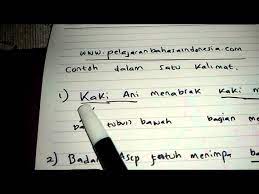 www.pelajaranbahasaindonesia.com
Contoh dalam satu kalimat.
1) Kaki Ani menabrak kaki
tubuh bawah bagian
2) Badan jatuh menimpa